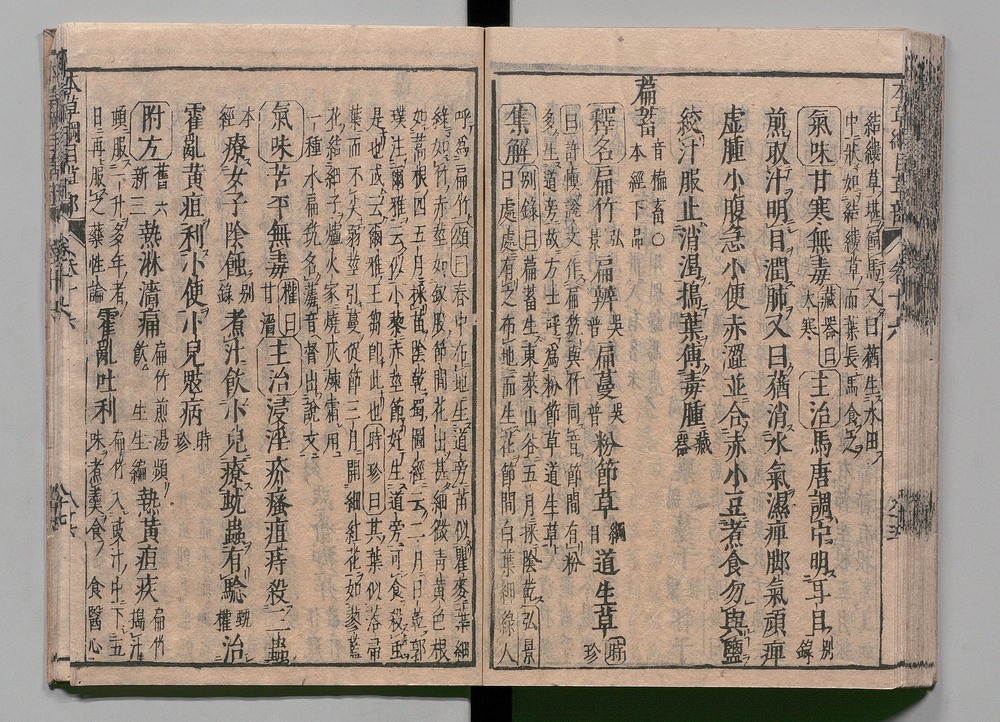 結縷草堪飼馬又曰蕕生水田
中狀如結縷草而葉長馬食之
氣味甘寒無毒藏器曰大寒主治馬唐調中明耳目別錄
煎取汁明目潤肺又曰蕕消水氣濕痺脚氣頑痺
虛腫小腹急小便赤澀並合赤小豆煮食勿與鹽
絞汁服止消渴搗葉傅毒腫藏器
萹蓄音楄畜○本經下品
釋名扁竹弘景扁辨吳普扁蔓吳普粉節草綱目道生草時珍
曰許慎說文作扁筑與竹同音節間有粉
多生道旁故方士呼為粉節草道生草
集解別錄曰萹蓄生東萊山谷五月採陰乾弘景
曰處處有之布地而生花節間白葉細綠人
呼為扁竹頌曰春中布地生道旁苗似瞿麥葉細
綠如竹赤莖如釵股節間花出甚細微青黃色根
如蒿根四五月採苗陰乾蜀圖經云二月日乾郭
璞注爾雅云似小藜赤莖節好生道旁可食殺蟲
是也或云爾雅王芻即此也時珍曰其葉似落帚
葉而不尖弱莖引蔓促節三月開細紅花如蓼藍
花結細子爐火家燒灰煉霜用
一種水扁筑名薄音督出說文
氣味苦平無毒權曰甘濇主治浸淫疥瘙疽痔殺三蟲
本經療女子陰蝕別錄煮汁飲小兒療蚘蟲有驗甄權治
霍亂黃疸利小便小兒魃病時珍
附方舊六新三熱淋濇痛扁竹煎湯頻飲生生編熱黃疸疾扁竹搗汁
頓服一升多年者日再服之藥性論霍亂吐利扁竹入豉汁中下五味煮羹食食醫心